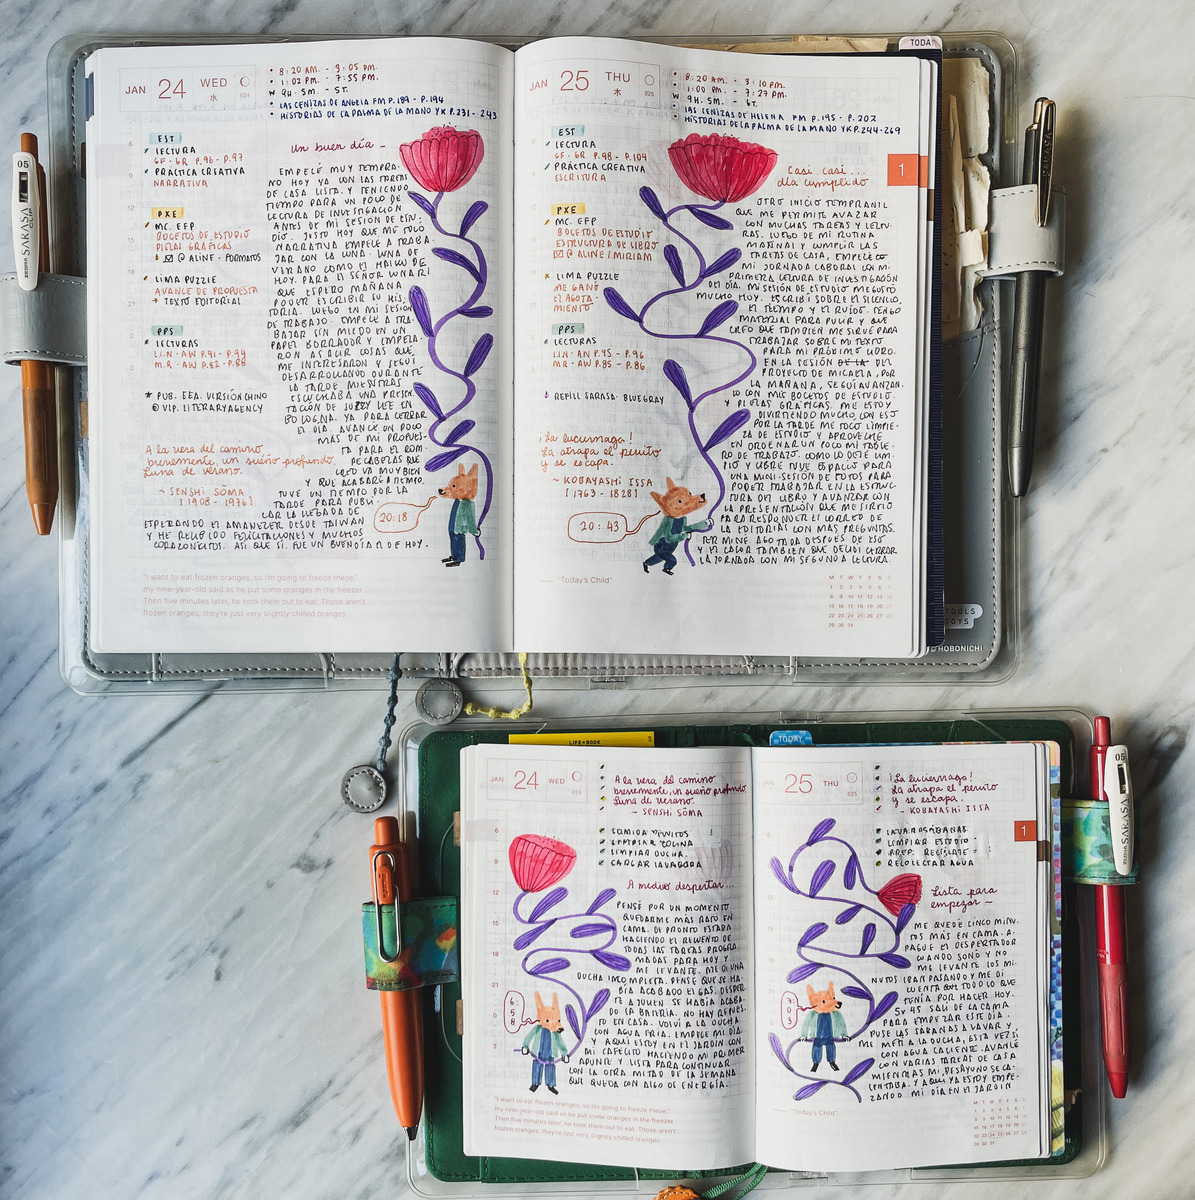 TODA
JAN 24 WED
水
024
8:20 AM. - 3:05 PM.
1:02 PM. - 7:55 PM.
W 9H. 5M. - 5T.
LAS CENIZAS DE ANGELA FM P.189 - P.194
HISTORIAS DE LA PALMA DE LA MANO YK P.231 - 243
EST
LECTURA
GF. GR P.96 - P.97
PRÁCTICA CREATIVA
NARRATIVA
PXE
MC. EFP
BOCETOS DE ESTUDIO
PIELAS GRÁFICAS
@ ALINE · FORMATOS
LIMA PUZZLE
AVANCE DE PROPUESTA
+ TEXTO EDITORIAL
PPS
LECTURAS
LIN · AW P.91 - P.94
M.R · AW P.82 - P.88
PUB. EEA. VERSIÓN CHINO
@ VIP. LITERARY AGENCY
A la vera del camino
brevemente, un sueño profundo
Luna de verano.
~ SENSHI SŌMA
[1908 - 1976]
Un buen día ~
EMPECÉ MUY TEMPRA-
NO HOY YA CON LAS TAREAS
DE CASA LISTA. Y TENIENDO
TIEMPO PARA UN POCO DE
LECTURA DE INVESTIGACIÓN
ANTES DE MI SESIÓN DE ESTU-
DIO. JUSTO HOY QUE ME TOCÓ
NARRATIVA EMPECÉ A TRABA-
JAR CON LA LUNA. UNA DE
VERANO COMO EL HAIKU DE
HOY. PARA EL SEÑOR LUNARI
QUE ESPERO MAÑANA
PODER ESCRIBIR SU HIS-
TORIA. LUEGO EN MI SESIÓN
DE TRABAJO. EMPECÉ A TRA-
BAJAR SIN MIEDO EN UN
PAPEL BORRADOR Y EMPEZA-
RON A SALIR COSAS QUE
ME INTERESARON Y SEGUÍ
DESARROLLANDO DURANTE
LA TARDE MIENTRAS
ESCUCHABA UNA PRESEN-
TACIÓN DE SUZY LEE EN
BOLOGNA. YA PARA CERRAR
EL DÍA. AVANCÉ UN POCO
MÁS DE MI PROPUES-
TA PARA EL ROM-
PECABEZAS QUE
CREO VA MUY BIEN
Y QUE ACABARÉ A TIEMPO.
TUVE UN TIEMPO POR LA
TARDE PARA PUBLI-
CAR LA LLEGADA DE
ESPERANDO EL AMANECER DESDE TAIWAN
Y HE RECIBIDO FELICITACIONES Y MUCHOS
CORAZONCITOS. ASÍ QUE SÍ. FUE UN BUEN DÍA EL DE HOY.
20:18
"I want to eat frozen oranges, so I'm going to freeze these,"
my nine-year-old said as he put some oranges in the freezer.
Then five minutes later, he took them out to eat. Those aren't
frozen oranges, they're just very slightly chilled oranges.
JAN 25 THU
木
025
8:20 AM. - 3:10 PM.
1:00 PM. - 7:27 PM.
W 9H. 5M. - 6T.
LAS CENIZAS DE HELENA FM P.195 - P.202
HISTORIAS DE LA PALMA DE LA MANO YK P.244-269
1
EST
LECTURA
GF. GR P.98 - P.104
PRÁCTICA CREATIVA
ESCRITURA
PXE
MC. EFP
BOCETOS DE ESTUDIO
ESTRUCTURA DE LIBRO
@ ALINE / MIRIAM
LIMA PUZZLE
ME GANÓ
EL AGOTA-
MIENTO
PPS
LECTURAS
LIN · AN P.95 - P.96
MR · AW P.85 - P.86
REFILL SARASA: BLUEGRAY
¡La luciernaga!
La atrapa el perrito
y se escapa.
~ KOBAYASHI ISSA
[1763 - 1828]
Casi casi...
día cumplido
OTRO INICIO TEMPRANIL
QUE ME PERMITE AVAZAR
CON MUCHAS TAREAS Y LECTU-
RAS. LUEGO DE MI RUTINA
MAÑANAI Y CUMPLIR LAS
TAREAS DE CASA, EMPECÉ CO
MI JORNADA LABORAL CON MI
PRIMERA LECTURA DE INVESTIGACIÓN
DEL DÍA. MI SESIÓN DE ESTUDIO ME GUSTÓ
MUCHO HOY. ESCRIBÍ SOBRE EL SILENCIO,
EL TIEMPO Y EL RUIDO. TENGO
MATERIAL PARA PULIR Y QUE
CREO QUE TAMBIEN ME SIRVE PARA
TRABAJAR SOBRE MI TEXTO
PARA MI PRÓXIMO LIBRO.
EN LA SESIÓN DE LA DEL
PROYECTO DE MICAELA, POR
LA MAÑANA, SEGUÍ AVANZAN-
DO CON MIS BOCETOS DE ESTUDIO.
Y PIELAS GRÁFICAS. ME ESTOY
DIVIRTIENDO MUCHO CON ESTO
POR LA TARDE ME TOCÓ LIMPIE-
ZA DE ESTUDIO Y APROVECHÉ
EN ORDENAR UN POCO MI TABLE-
RO DE TRABAJO. COMO LO DEJÉ LIM-
PIO Y LIBRE TUVE ESPACIO PARA
UNA MINI-SESIÓN DE FOTOS PARA
PODER TRABAJAR EN LA ESTRUC-
TURA DEL LIBRO Y AVANZAR CON
LA PRESENTACIÓN QUE ME SIRVIÓ
PARA RESPONDER EL CORREO DE
LA EDITORIAL CON MÁS PREGUNTAS.
TERMINÉ AGOTADA DESPUÉS DE ESO
Y EL CALOR TAMBIÉN QUE DECIDÍ CERRAR
LA JORNADA CON MI SEGUNDA LECTURA.
20:43
"Today's Child"
M T W T F S S
1 2 3 4 5 6 7
8 9 10 11 12 13 14
15 16 17 18 19 20 21
22 23 24 25 26 27 28
29 30 31
TOOLS
TOYS
HOBONICHI
05
ZEBRA SARASA CLIP
LIFE BOOK
TODAY
JAN 24 WED
024
A la vera del camino
brevemente, un sueño profundo
Luna de verano.
~ SENSHI SŌMA
COMIDA PERRITOS
LIMPIAR COCINA
LIMPIAR DUCHA
CARGAR LAVADORA
A medio despertar...
PENSÉ POR UN MOMENTO
QUEDARME MÁS RATO EN
CAMA. DE PRONTO ESTABA
HACIENDO EL RECUENTO DE
TODAS LAS TAREAS PROGRA-
MADAS PARA HOY Y
ME LEVANTÉ. ME DI UNA
DUCHA INCOMPLETA. PENSÉ QUE SE HA-
BÍA ACABADO EL GAS. DESPER-
TÉ A JULIEN SE HABÍA ACABA-
DO LA BATERÍA. NO HAY REPUES-
TO EN CASA. VOLVÍ A LA DUCHA
CON AGUA FRÍA. EMPECÉ MI DÍA
Y AQUÍ ESTOY EN EL JARDÍN CON
MI CAFECITO HACIENDO MI PRIMER
APUNTE Y LISTA PARA CONTINUAR
CON LA OTRA MITAD DE LA SEMANA
QUE QUEDA CON ALGO DE ENERGÍA.
6:58
"I want to eat frozen oranges, so I'm going to freeze these,"
my nine-year-old said as he put some oranges in the freezer.
Then five minutes later, he took them out to eat. Those aren't
frozen oranges, they're just very slightly chilled oranges.
JAN 25 THU
025
¡La luciernaga!
La atrapa el perrito
y se escapa.
~ KOBAYASHI ISSA
LAVAR SÁBANAS
LIMPIAR ESTUDIO
PREP. RECICLAJE
RECOLECTAR AGUA
1
Lista para
empezar ~
ME QUEDÉ CINCO MINU-
TOS MÁS EN CAMA. A-
PAGUÉ EL DESPERTADOR
CUANDO SONÓ Y NO
ME LEVANTÉ. LOS MI-
NUTOS IBAN PASANDO Y ME DI
CUENTA QUE TODO LO QUE
TENÍA POR HACER HOY.
5Y 45 SALÍ DE LA CAMA
PARA EMPEZAR ESTE DÍA.
PUSE LAS SÁBANAS A LAVAR Y
ME METÍ A LA DUCHA, ESTA VEZ SÍ
CON AGUA CALIENTE. AVANCÉ
CON VARIAS TAREAS DE CASA
MIENTRAS MI DESAYUNO SE CA-
LENTABA. Y AQUÍ YA ESTOY EMPE-
ZANDO MI DÍA EN EL JARDÍN
7:03
"Today's Child"
M T W T F S S
1 2 3 4 5 6 7
8 9 10 11 12 13 14
15 16 17 18 19 20 21
22 23 24 25 26 27 28
29 30 31
05
ZEBRA SARASA